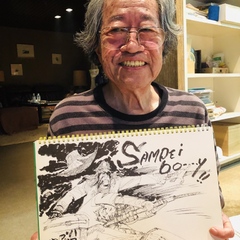 SAMPEi
bo---y!!